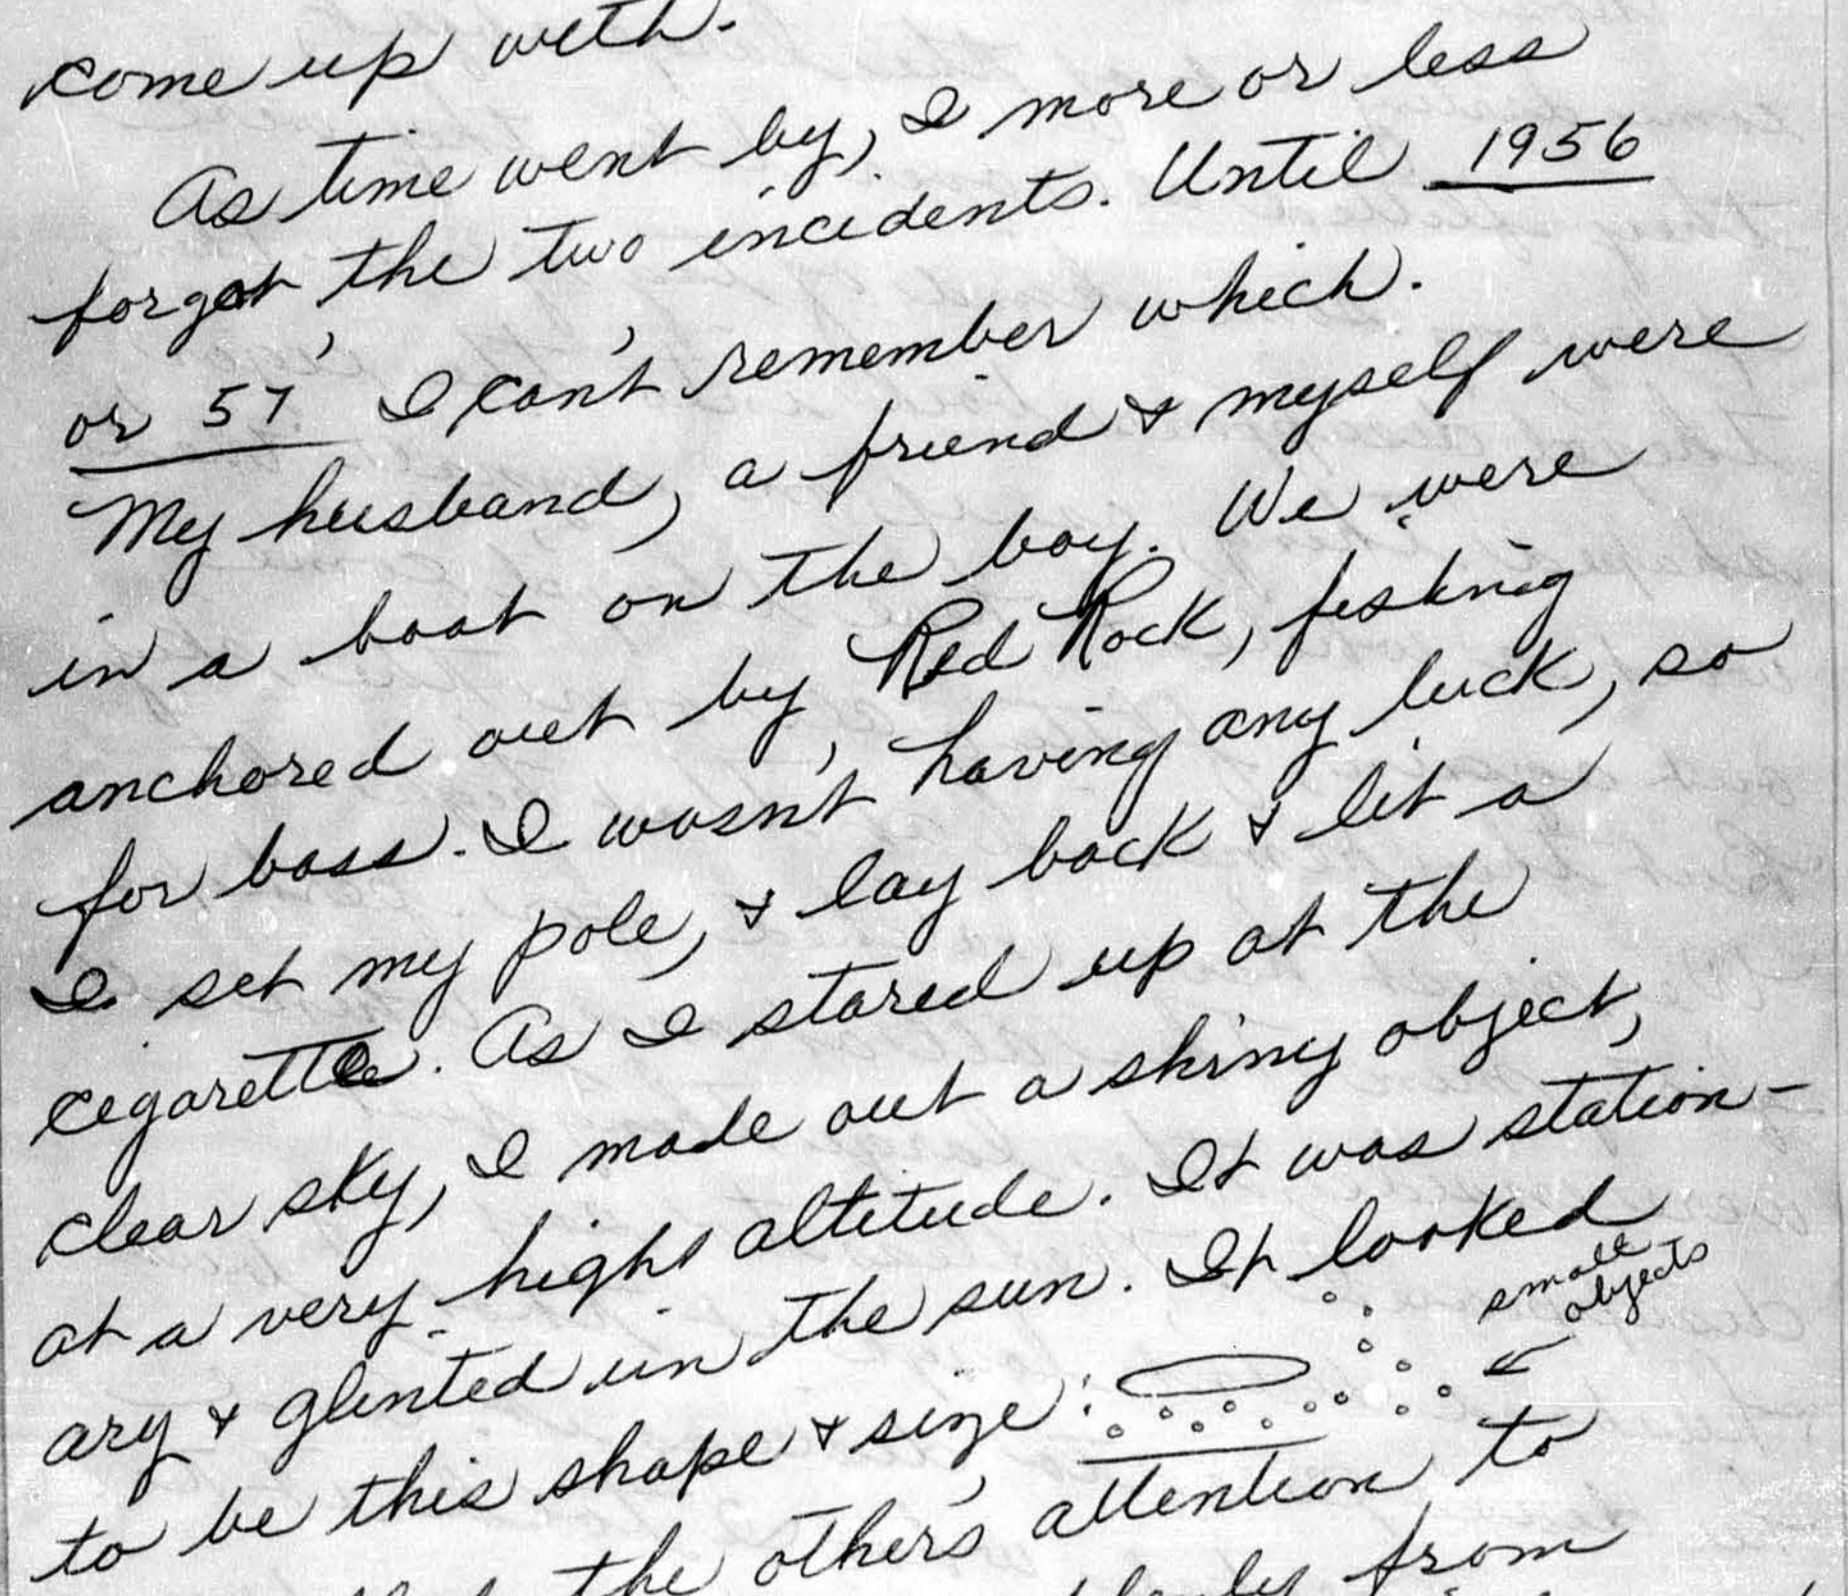 come up with.
As time went by, I more or less
forgot the two incidents. Until 1956
or 57' I can't remember which.
My husband, a friend & myself were
in a boat on the bay. We were
anchored out by Red Rock, fishing
for bass. I wasn't having any luck, so
I set my pole, & lay back & lit a
cigarette. As I stared up at the
clear sky, I made out a shiny object,
at a very high altitude. It was station-
ary & glinted in the sun. It looked
to be this shape & size:
small
objects
the others' attention to
from